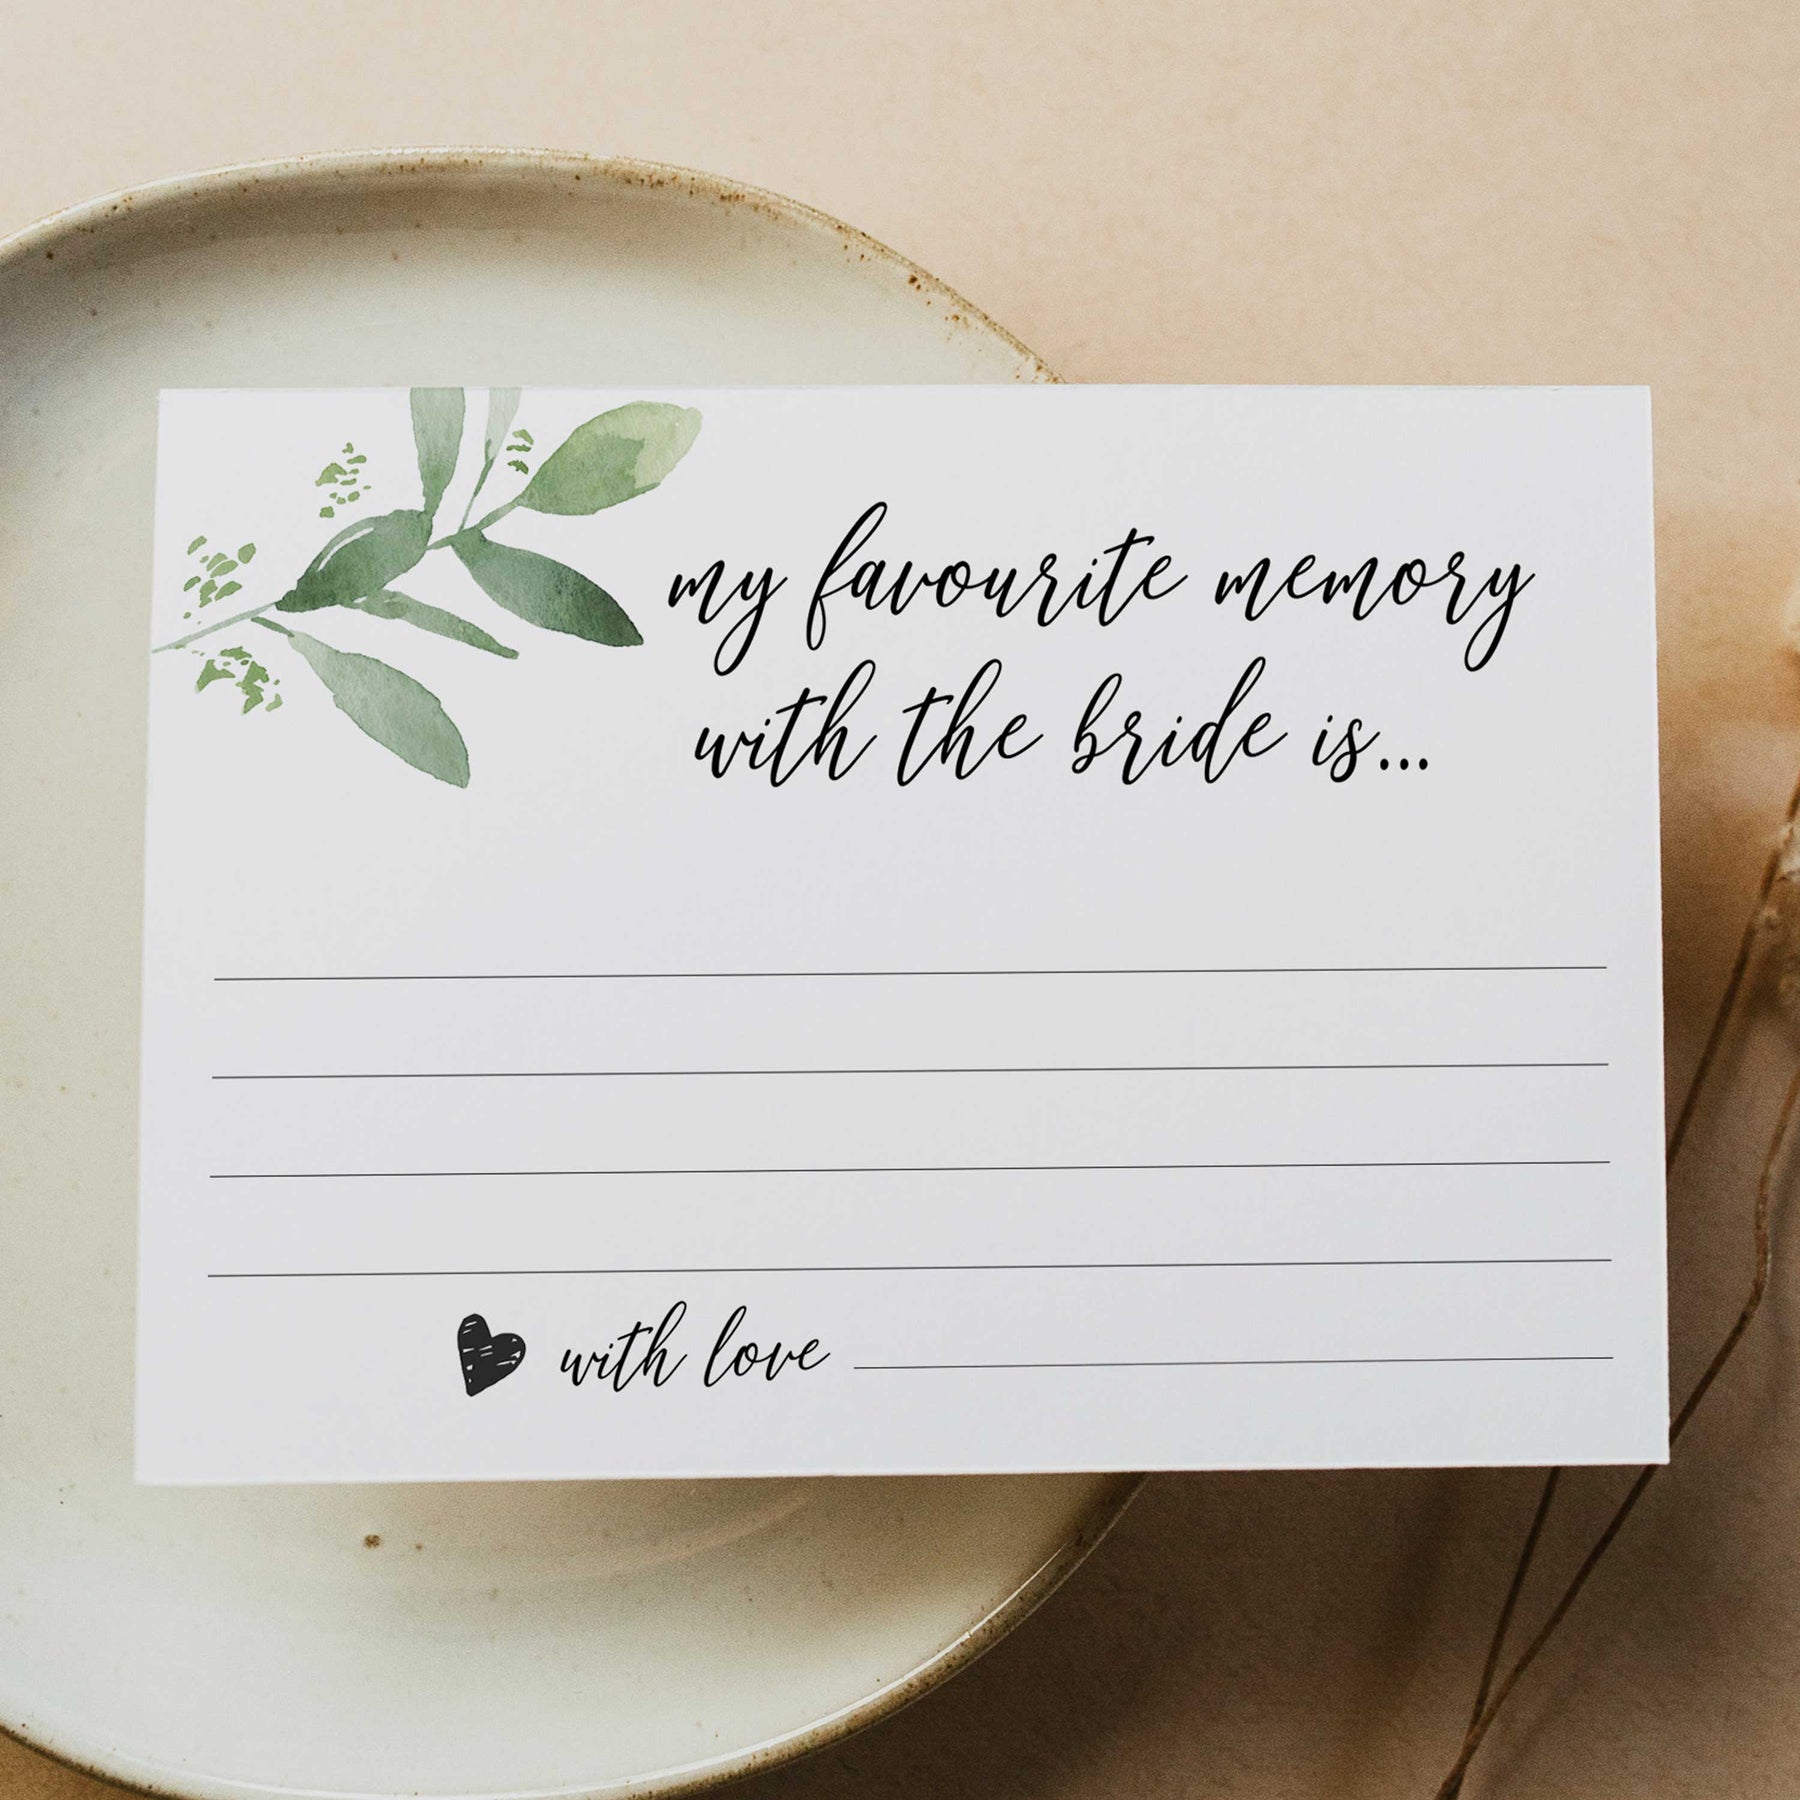 my favourite memory
with the bride is...
with love